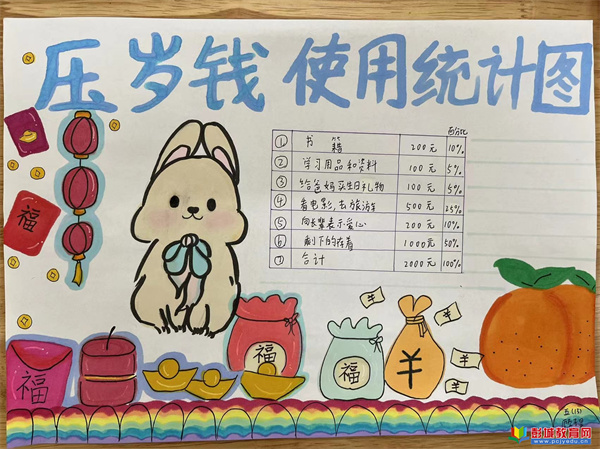 压岁钱 使用统计图
百分比
① 书籍 200元 10%
② 学习用品和资料 100元 5%
③ 给爸妈买生日礼物 100元 5%
④ 看电影,去旅游 500元 25%
⑤ 向长辈表示爱心 200元 10%
⑥ 剩下的存着 1000元 50%
⑦ 合计 2000元 100%
福
福
福
福
¥
¥
¥
¥
¥
五(13)
彭城教育网
www.pcjyedu.cn